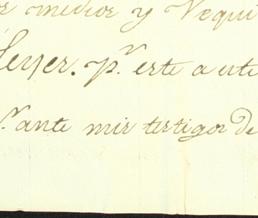 medios y Requi
Leyes. p.r este auto
p.r ante mis testigos de